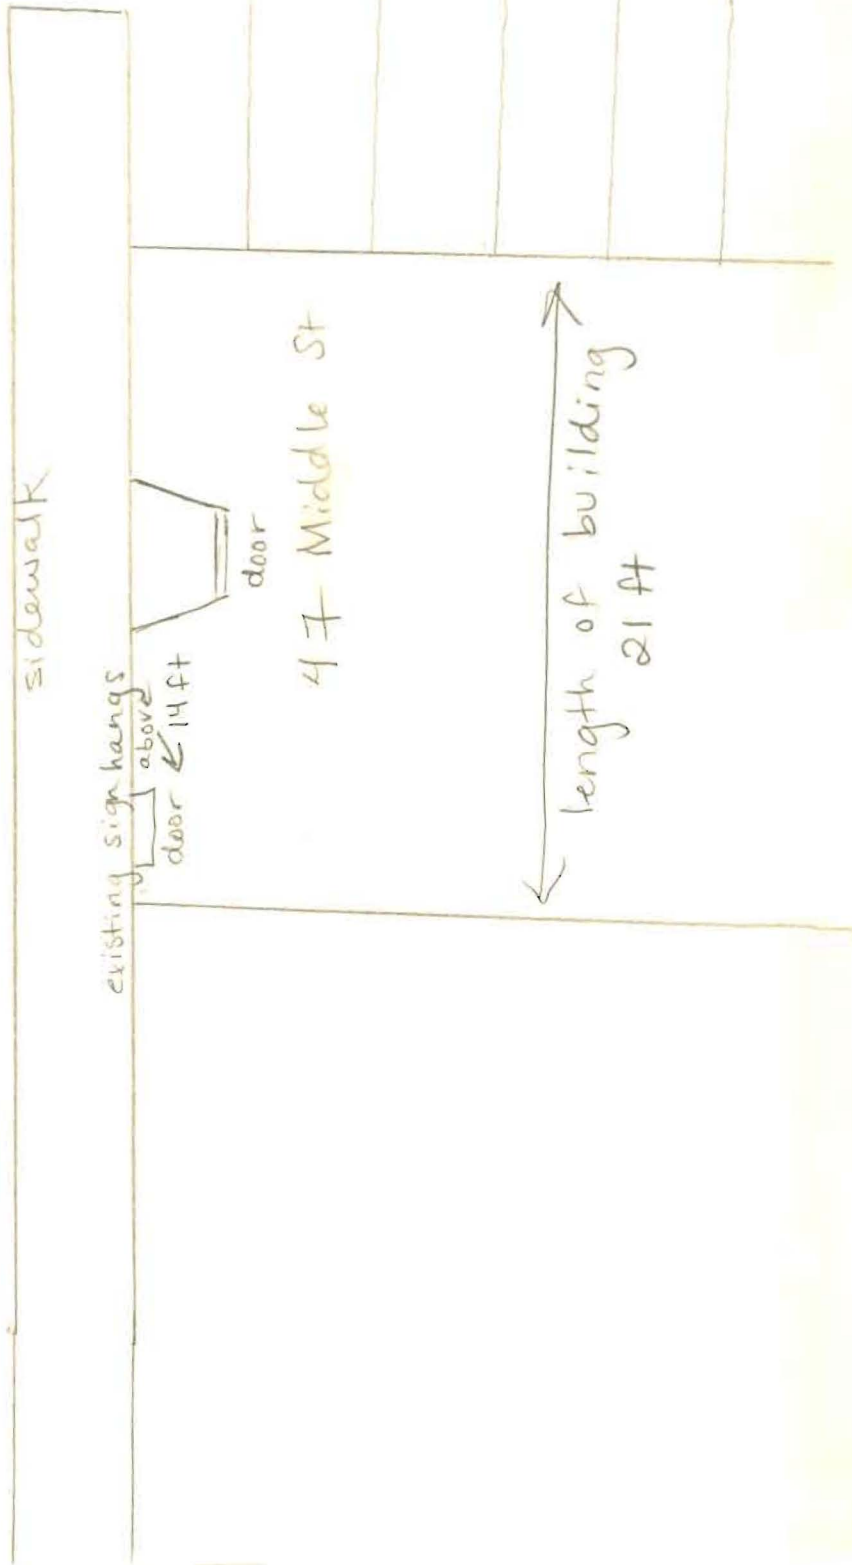 sidewalk
existing sign hangs
above
door
14 ft
door
47 Middle St
length of building
21 ft